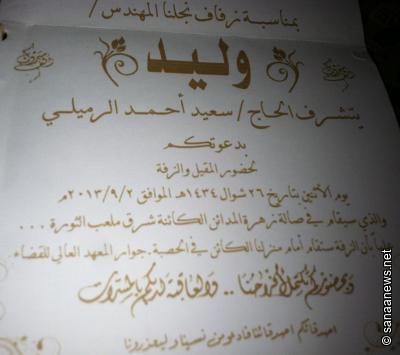 بمناسبة زفاف نجلنا المهندس /
وليد
يتشرف الحاج / سعيد أحمد الرميلي
بدعوتكم
لحضور المقيل والزفة
يوم الاثنين بتاريخ ٢٦ شوال ١٤٣٤هـ الموافق ٢٠١٣/٩/٢م
والذي سيقام في صالة زهرة المدائن الكائنة شرق ملعب الثورة ...
علماً بأن الزفة ستقام أمام منزلنا الكائن في الحصبة. جوار المعهد العالي للقضاء.
وبحضوركم تكتمل أفراحنا .. والعاقبة لديكم بالمسرات
© sanaanews.net